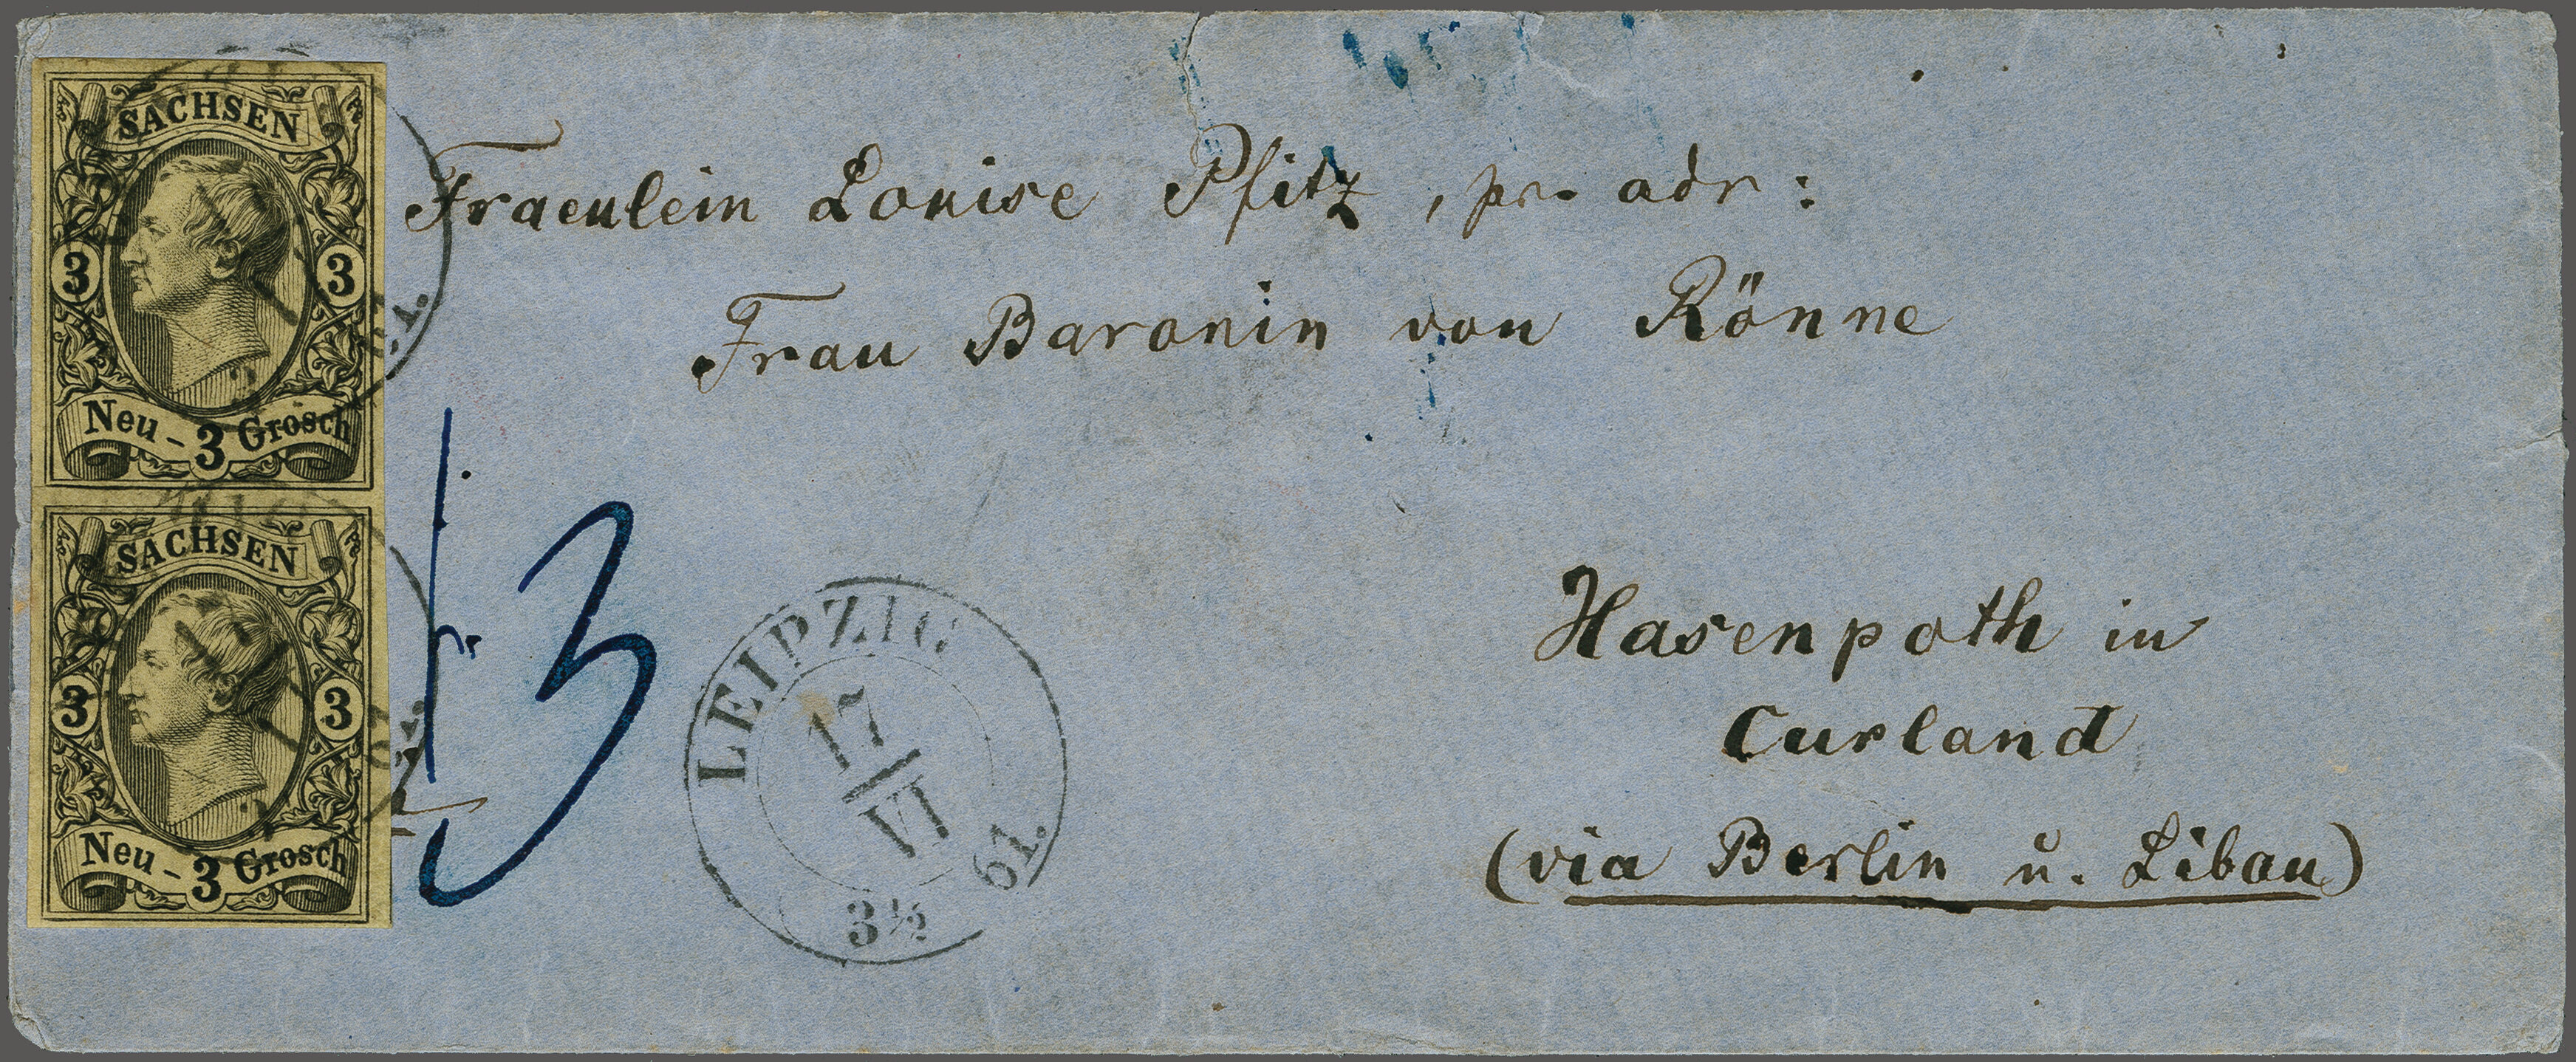 SACHSEN
3 3
Neu - 3 Grosch
SACHSEN
3 3
Neu - 3 Grosch
61.
61.
Fraeulein Louise Pfitz, pr. adr:
Frau Baronin von Rönne
3
LEIPZIG
17
VI
61.
3 1/2
Hasenpoth in
Curland
(via Berlin u. Libau)